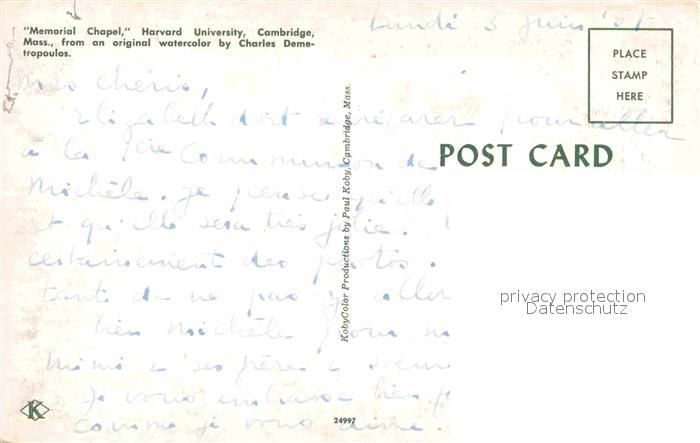 "Memorial Chapel," Harvard University, Cambridge,
Mass., from an original watercolor by Charles Deme-
tropoulos.
Lundi 3 juin
PLACE
STAMP
HERE
POST CARD
Mes chéris,
Elizabeth doit se préparer pour aller
à la 1ère Communion de
Michèle. Je pense qu'elle
et qu'elle sera très jolie.
certainement des photos.
tant de ne pas y aller
bien Michèle pour
Mimi & ses frère & soeur
Je vous embrasse bien
comme je vous aime.
KobyColor Productions by Paul Koby, Cambridge, Mass.
privacy protection
Datenschutz
K
24997